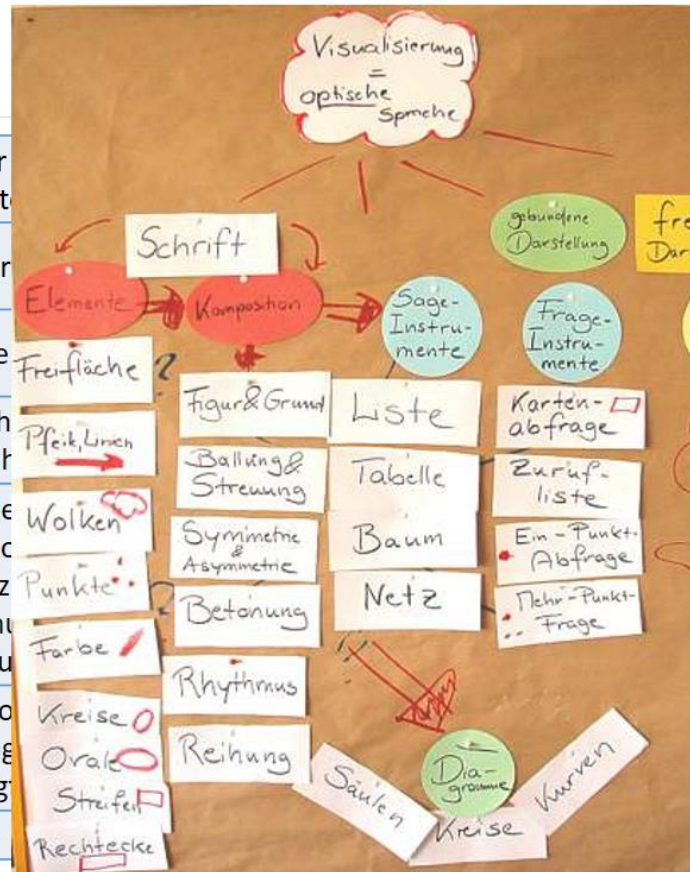 Visualisierung
=
optische
Sprache
Schrift
gebundene
Darstellung
Elemente
Komposition
Sage-
Instru-
mente
Frage-
Instru-
mente
Freifläche
Pfeile, Linien
Wolken
Punkte
Farbe
Kreise
Ovale
Streifen
Rechtecke
Figur & Grund
Ballung &
Streuung
Symmetrie
&
Asymmetrie
Betonung
Rhythmus
Reihung
Liste
Tabelle
Baum
Netz
Karten-
abfrage
Zuruf-
liste
Ein-Punkt-
Abfrage
Mehr-Punkt-
Frage
Dia-
gramme
Säulen
Kreise
Kurven